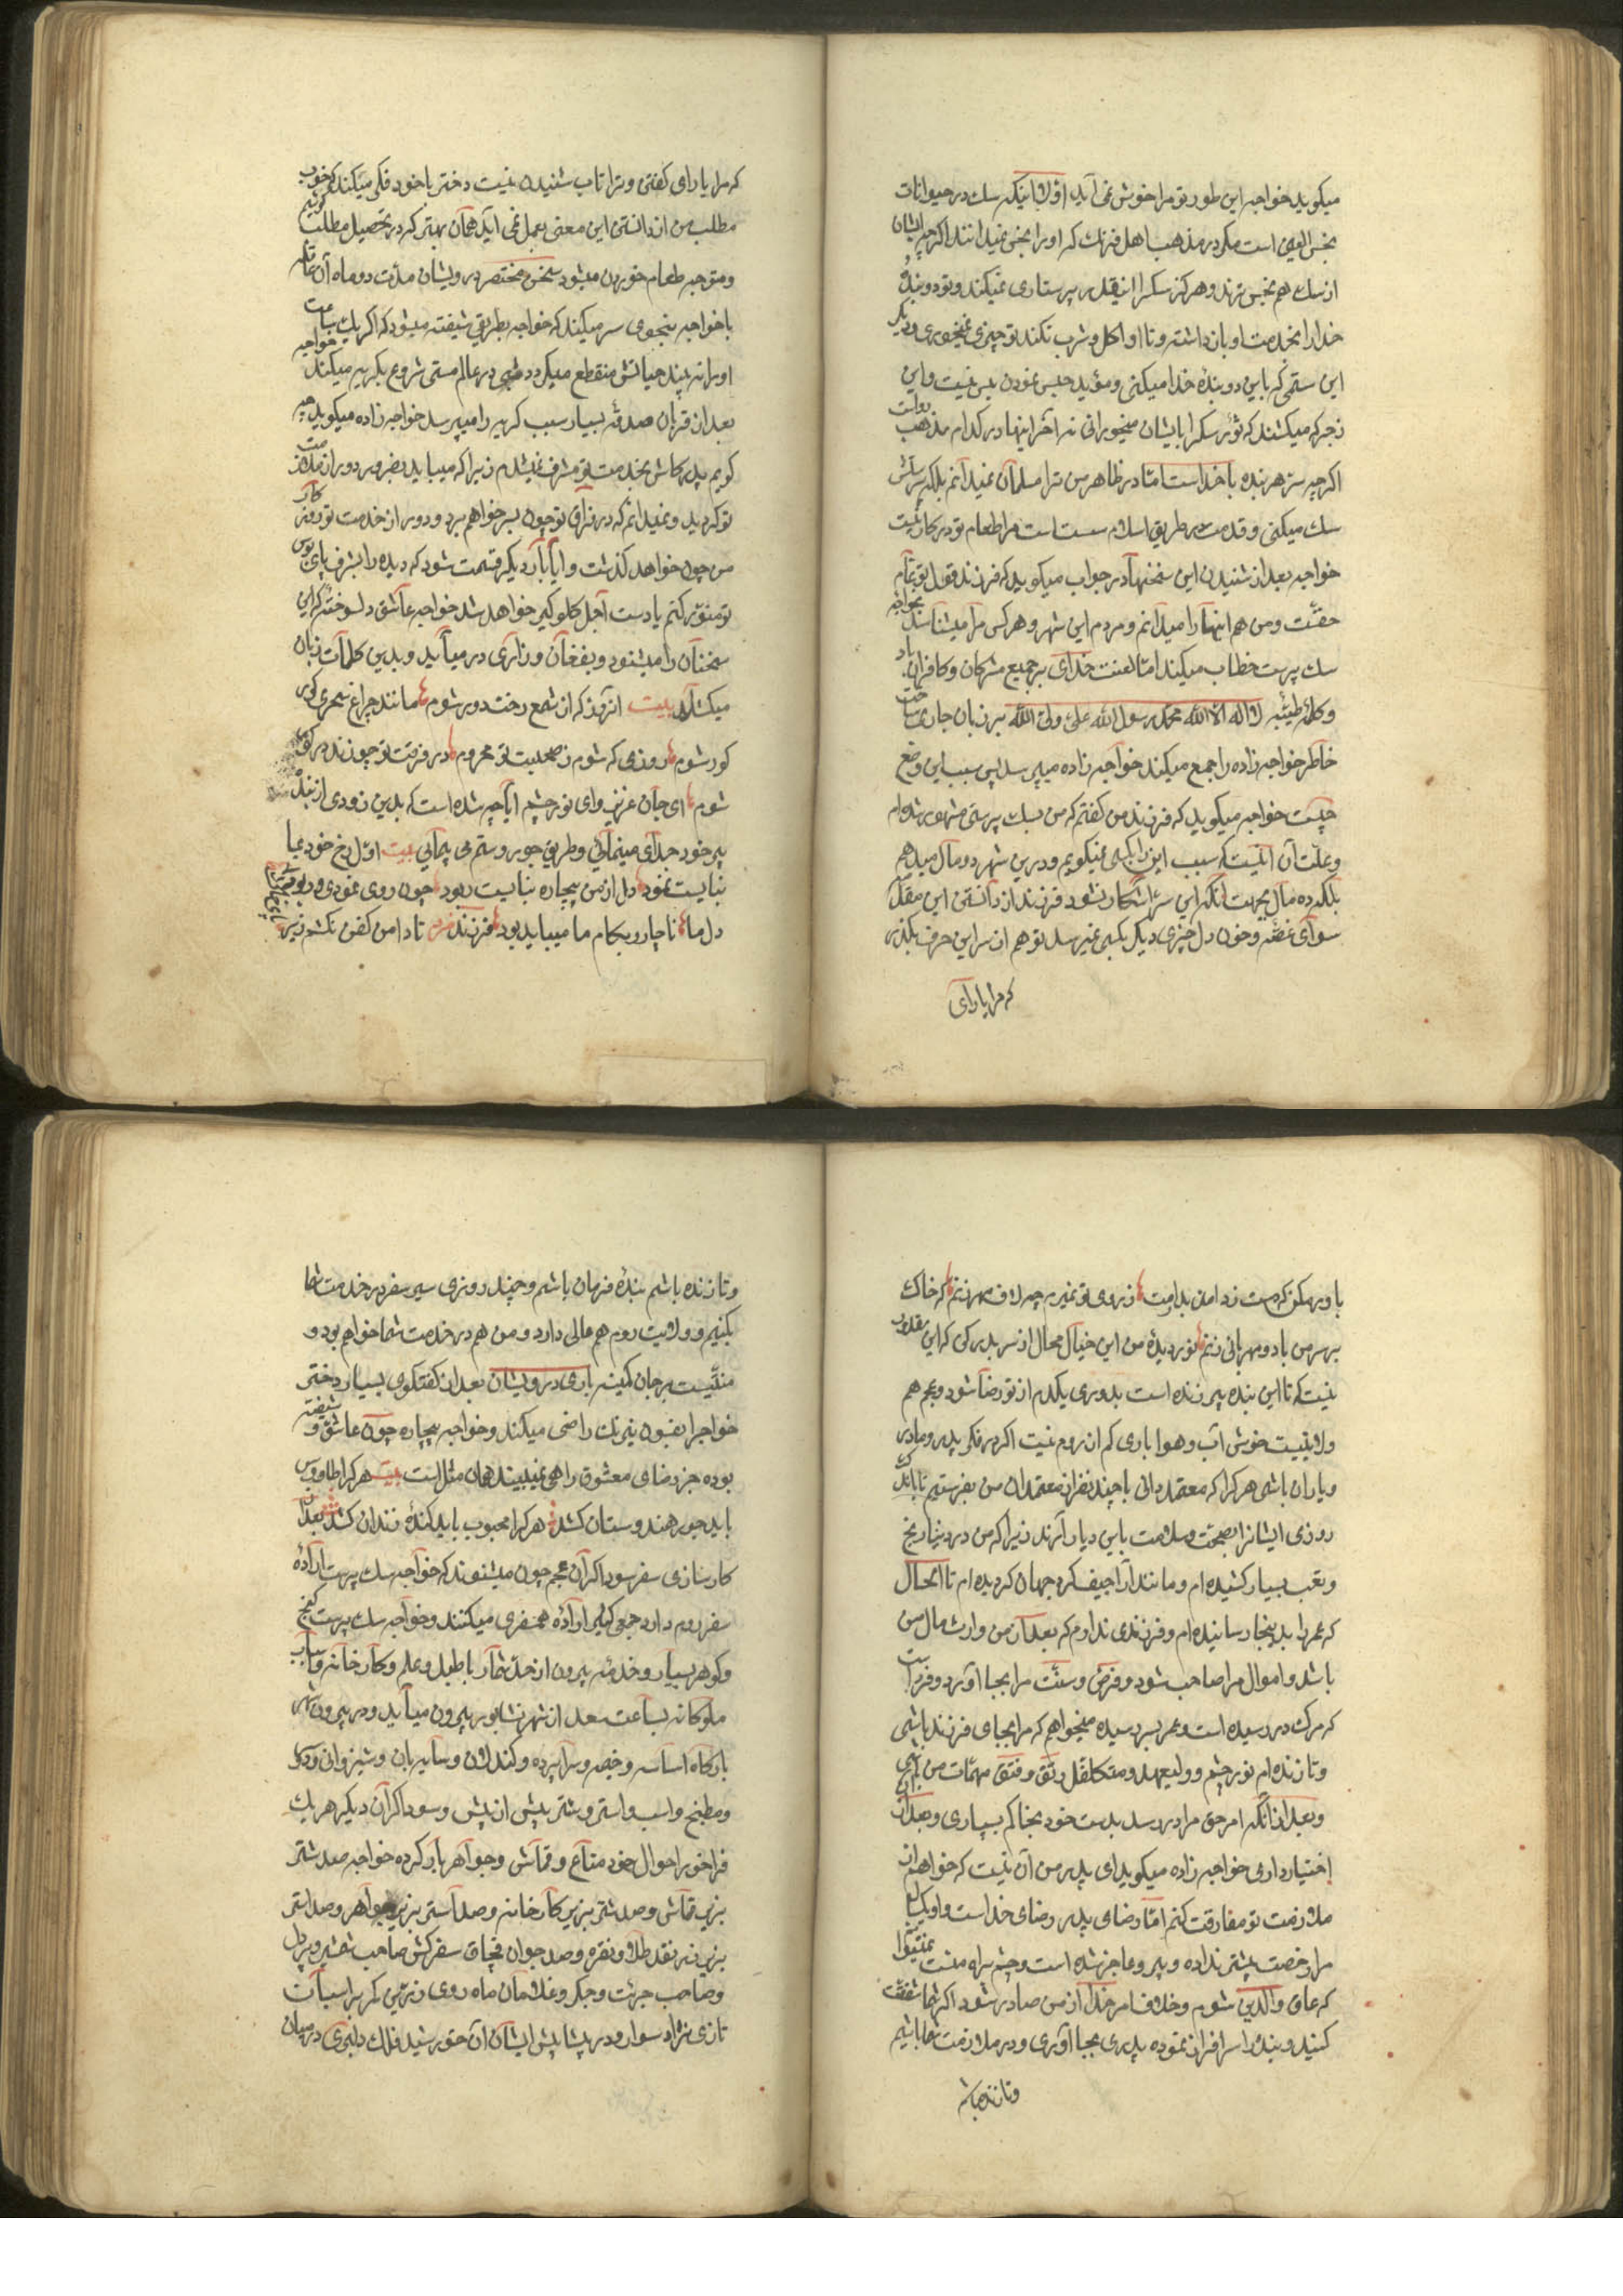 میکوید خواجه این طور تو مرا خوش نمی آید اولا اینکه سک در حیوانات
نجس العین است مکر در مذهب اهل فرنک که او را نجس نمیدانند اکرچه ایشان
از سک هم نجس ترند و هرکز سک را اینقدر پرستاری نمیکنند و تو دو بندهٔ
خدا را بخدمت او بازداشته و تا او اکل و شرب نکند تو چیزی نمیخوری و دیکر
این ستمی که باین دو بندهٔ خدا میکنی و مؤبد حبس نمودن بس نیست و این
زجر که میکشند که تو پس سک را بایشان میخورانی نه آخر اینها در کدام مذهب رواست
اکرچه سر هر بنده با خداست امّا در ظاهر من ترا مسلمان نمیدانم بلکه پرستش
سک میکنی و قدمت در طریق اسلام سست است مرا طعام تو در کار نیست
خواجه بعد از شنیدن این سخنها در جواب میکوید که فرزند قول تو تمام
حقّست و من هم اینها را میدانم و مردم این شهر و هر کس مرا میشناسد بخواجه
سک پرست خطاب میکنند امّا لعنت خدای بر جمیع مشرکان و کافران باد
و کلمهٔ طیّبه لا اله الا الله محمد رسول الله علی ولی الله بر زبان جاری ساخت
خاطر خواجه زاده را جمع میکند خواجه زاده میپرسد پس سبب این وضع
چیست خواجه میکوید که فرزند من کفتم که من بسک پرستی مشهور شده ام
و علّت آن اینست که سبب این را بکسی نمیکویم و درین شهر دو مال میدهم
بلکه ده مال بجهت آنکه این سرّ آشکار نشود فرزند از دانستن این مقدمه
سوای غصّه و خون دل چیزی دیکر بکسی نمیرسد تو هم از سر این حرف بکذر
که مرا یارای
که مرا یارای کفتن و ترا تاب شنیدن نیست دختر با خود فکر میکند که خوب
مطلب من از دانستن این معنی بعمل نمی آید همان بهتر که در تحصیل مطلب کوشیم
و متوجه طعام خوردن میشود سخن مختصر درویشان مدّت دو ماه آن عاقله
با خواجه بنحوی سر میکند که خواجه بطریقی شیفته میشود که اکر یک ساعت
او را نه بیند حیاتش منقطع میکردد شبی در عالم مستی شروع بکریه میکند خواجه
بعد از قربان صدقهٔ بسیار سبب کریه را میپرسد خواجه زاده میکوید چه
کویم پدر کاش بخدمت تو مشرف نمیشدم زیرا که میباید بضرور دور از ملازمت
تو کردید و نمیدانم که در فراق تو چون بسر خواهم برد و دور از خدمت تو روزکار
من چون خواهد کذشت و آیا بار دیکر قسمت شود که دیده را بشرف پای بوس
تو منوّر کنم یا دست اجل کلوکیر خواهد شد خواجه عاشق دلسوخته که این
سخنان را میشنود و بفغان و زاری در میآید و بدین کلمات زبان
میکشاید بیت از آن روز که از شمع رخت دور شوم مانند چراغ سحری کور
کور شوم روزی که شوم ز صحبت تو محروم در فرقت تو چو زنده در کور
شوم ای جان عزیز وای نور چشم آیا چه شده است که بدین زودی از بندهٔ
پیر خود جدای مینمائی و طریق جور و ستم می پیمائی بیت اوّل رخ خود بما
نبایست نمود دل از من بیچاره نبایست ربود چون روی نمودی و ربودی
دل ما ناچار و بکام ما میباید بود فرزند من تا دامن کفن نکشم زیر
باور مکن که دست ز دامن بدارمت ز روی تو نمیرم چه لاف مهر زنم که خاک
بر سر من باد و مهربانی زنم نور دیدهٔ من این خیال محال از سر بدر کن که این مقدور
نیست که تا این بنده پیر زنده است بدوری یکدم از تو رضا شود و عجم هم
ولایتیست خوش آب و هوا باری کم از روم نیست اکر در فکر پدر و مادر
و یاران باشی هر کرا که معتمد دانی با چند نفر از معتمدان من بفرستیم تا باندک
روزی ایشان را بصحّت و سلامت باین دیار آرند زیرا که من در دنیا رنج
و تعب بسیار کشیده ام و مانند اراجیف کرد جهان کردیده ام تا الحال
که عمر را بدینجا رسانیده ام و فرزندی ندارم که بعد از من وارث مال من
باشد و اموال مرا صاحب شود و فرض و سنّت مرا بجا آورد و فرداست
که مرک در رسیده است و عمر بسر رسیده میخواهم که مرا بجای فرزند باشی
و تا زنده ام نور چشم و ولیعهد و متکفل رتق و فتق مهمّات من باشی
و بعد از آنکه امر حق مرا در رسد بدست خود بخاکم بسپاری و بعد از آن
اختیار داری خواجه زاده میکوید ای پدر من آن نیست که خواهم از
ملازمت تو مفارقت کنم امّا رضای پدر رضای خداست و او یکسال
مرا رخصت بیشتر نداده و پیر و عاجز شده است و چشم براه منست نمیتوانم
که عاق والدین شوم و خلاف امر خدا از من صادر شود اکر شما شفقت
کنید و بنده را سرافراز نموده پدری بجا آوری و در ملازمت شما باشیم
و تا زنده باشم
و تا زنده باشم بندهٔ فرمان باشم و چند روزی سیر سفر در خدمت شما
بکنیم و ولایت روم هم عالمی دارد و من هم در خدمت شما خواهم بود و
منّتست بر جان کمینه باری درویشان بعد از کفتکوی بسیار دختر
خواجه را بفسون نیرنک راضی میکند و خواجه بیچاره چون عاشق و شیفته
بوده جز رضای معشوق راهی نمیبیند همان مثل است بیت هر کرا طاوس
باید جور هندوستان کشد هر کرا محبوب باید کندهٔ زندان کشد بعد از
کارسازی سفر سوداکران عجم چون میشنوند که خواجه سک پرست ارادهٔ
سفر روم دارد جمعی کثیر ارادهٔ همسفری میکنند و خواجه سک پرست کنج
و کوهر بسیار و خدمهٔ بیرون از حدّ شمار با طبل و علم و کارخانه و اسباب
ملوکانه بساعت سعد از شهر نشابور بیرون میآید و در بیرون شهر
بارکاه اساسه و خیمه و سراپرده و کندلان و سایه بان و شیروانی و
و مطبخ و اسب و استر و شتر پیش از پیش و سوداکران دیکر هر یک
فراخور احوال خود متاع و قماش و جواهر بار کرده خواجه صد شتر
بزیر قماش و صد شتر بزیر کارخانه و صد استر بزیر جواهر و صد استر
بزیر زر نقد طلا و نقره و صد جوان قبچاق سفرکش صاحب شمشیر و پر دل
و صاحب جرئت و جکر و غلامان ماه روی زرّین کمر بر اسبان
تازی نژاد سوار و در پیشاپیش ایشان آن خورشید فلک دلبری در میان